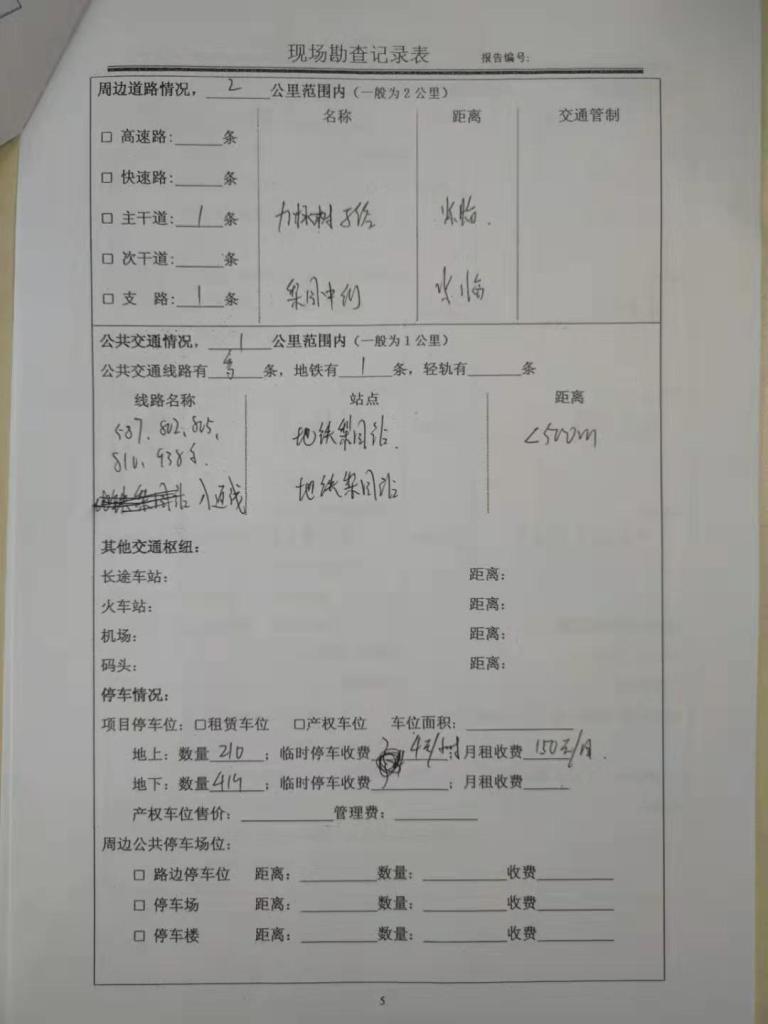 现场勘查记录表 报告编号:
周边道路情况, 2 公里范围内(一般为2公里)
名称 距离 交通管制
□ 高速路:____条
□ 快速路:____条
□ 主干道: 1 条
□ 次干道:____条
□ 支 路: 1 条 梨园中街 紧临
公共交通情况, 1 公里范围内(一般为1公里)
公共交通线路有 多 条, 地铁有 1 条, 轻轨有____条
线路名称 站点 距离
587、802、805、 地铁梨园站 <500m
810、938等.
八通线 地铁梨园站
其他交通枢纽:
长途车站: 距离:
火车站: 距离:
机场: 距离:
码头: 距离:
停车情况:
项目停车位: □租赁车位 □产权车位 车位面积:____
地上: 数量 210 ; 临时停车收费 4元/小时 月租收费 150元/月.
地下: 数量 414 ; 临时停车收费____; 月租收费____
产权车位售价:____管理费:____
周边公共停车场位:
□ 路边停车位 距离:____数量:____收费____
□ 停车场 距离:____数量:____收费____
□ 停车楼 距离:____数量:____收费____
5